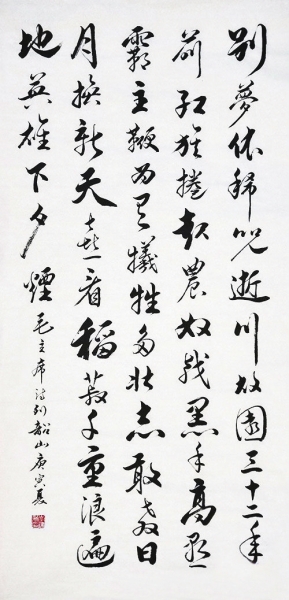 別夢依稀咒逝川故園三十二年
前紅旗捲起農奴戟黑手高懸
霸主鞭為有犧牲多壯志敢教日
月換新天喜看稻菽千重浪遍
地英雄下夕煙 毛主席詩到韶山庚寅夏